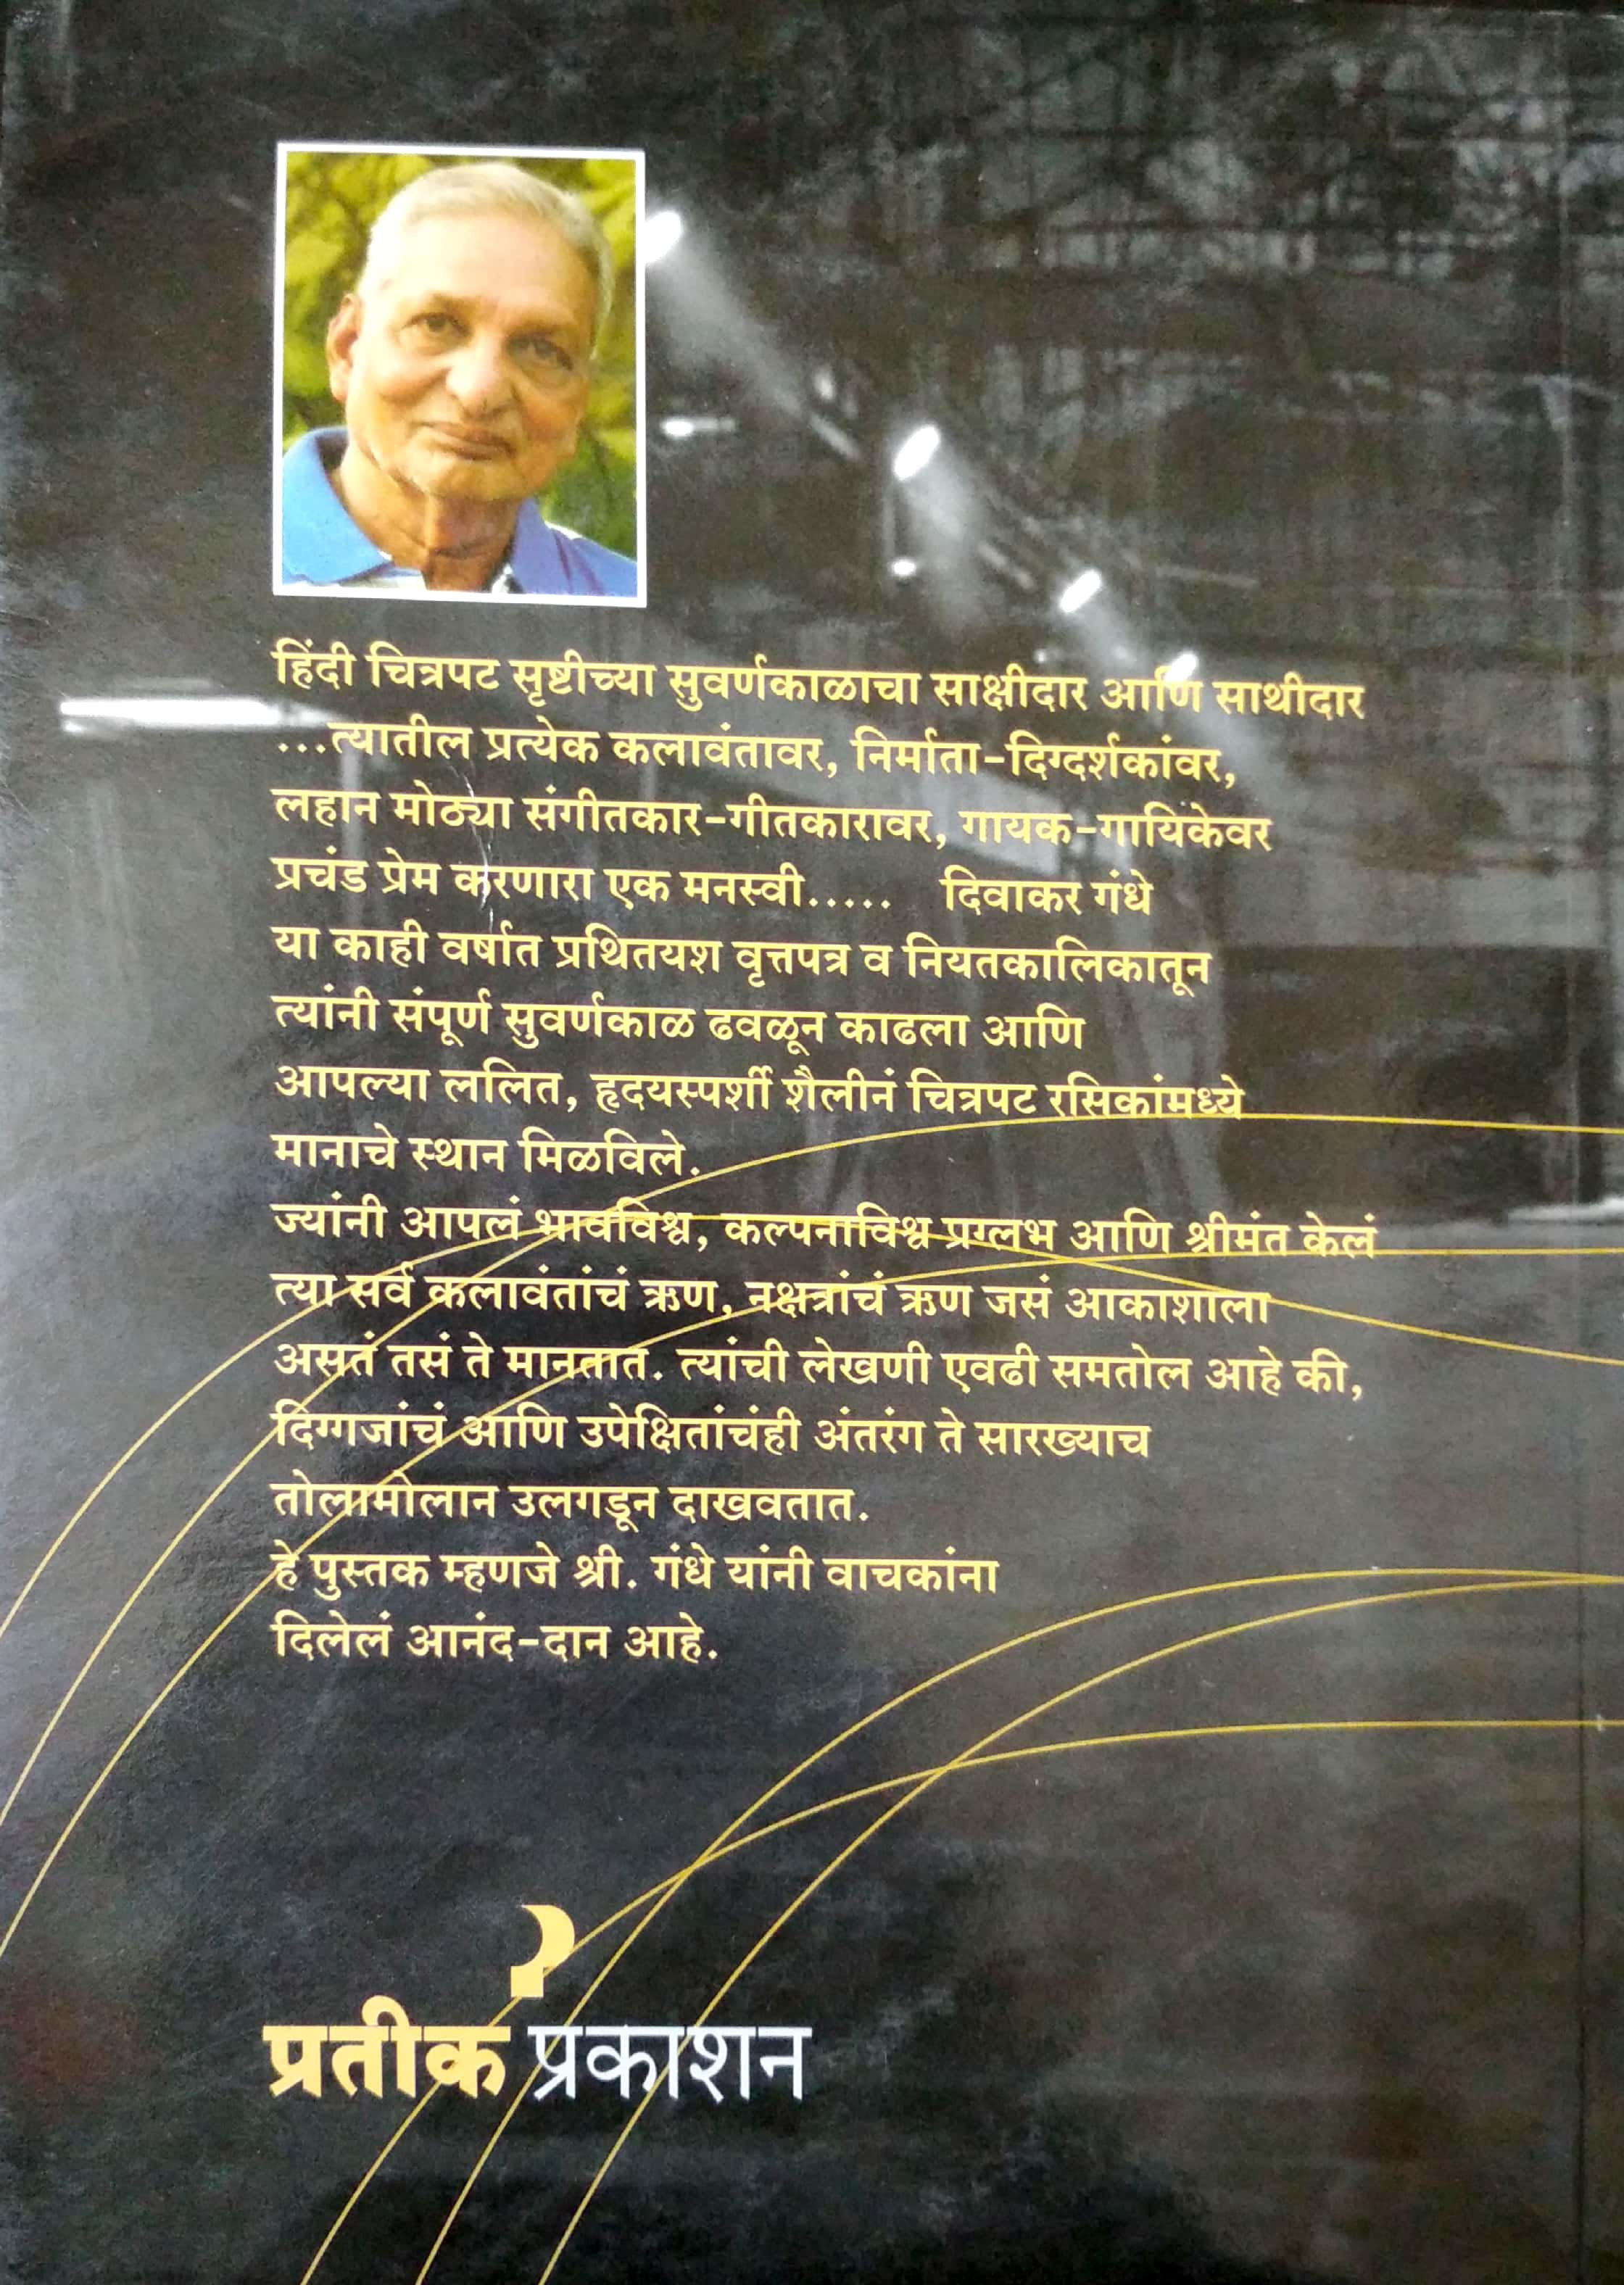 हिंदी चित्रपट सृष्टीच्या सुवर्णकाळाचा साक्षीदार आणि साथीदार
...त्यातील प्रत्येक कलावंतावर, निर्माता-दिग्दर्शकांवर,
लहान मोठ्या संगीतकार-गीतकारावर, गायक-गायिकेवर
प्रचंड प्रेम करणारा एक मनस्वी..... दिवाकर गंधे
या काही वर्षात प्रथितयश वृत्तपत्र व नियतकालिकातून
त्यांनी संपूर्ण सुवर्णकाळ ढवळून काढला आणि
आपल्या ललित, हृदयस्पर्शी शैलीनं चित्रपट रसिकांमध्ये
मानाचे स्थान मिळविले.
ज्यांनी आपलं भावविश्व, कल्पनाविश्व प्रग्लभ आणि श्रीमंत केलं
त्या सर्व कलावंतांचं ऋण, नक्षत्रांचं ऋण जसं आकाशाला
असतं तसं ते मानतात. त्यांची लेखणी एवढी समतोल आहे की,
दिग्गजांचं आणि उपेक्षितांचंही अंतरंग ते सारख्याच
तोलामोलान उलगडून दाखवतात.
हे पुस्तक म्हणजे श्री. गंधे यांनी वाचकांना
दिलेलं आनंद-दान आहे.
प्रतीक प्रकाशन